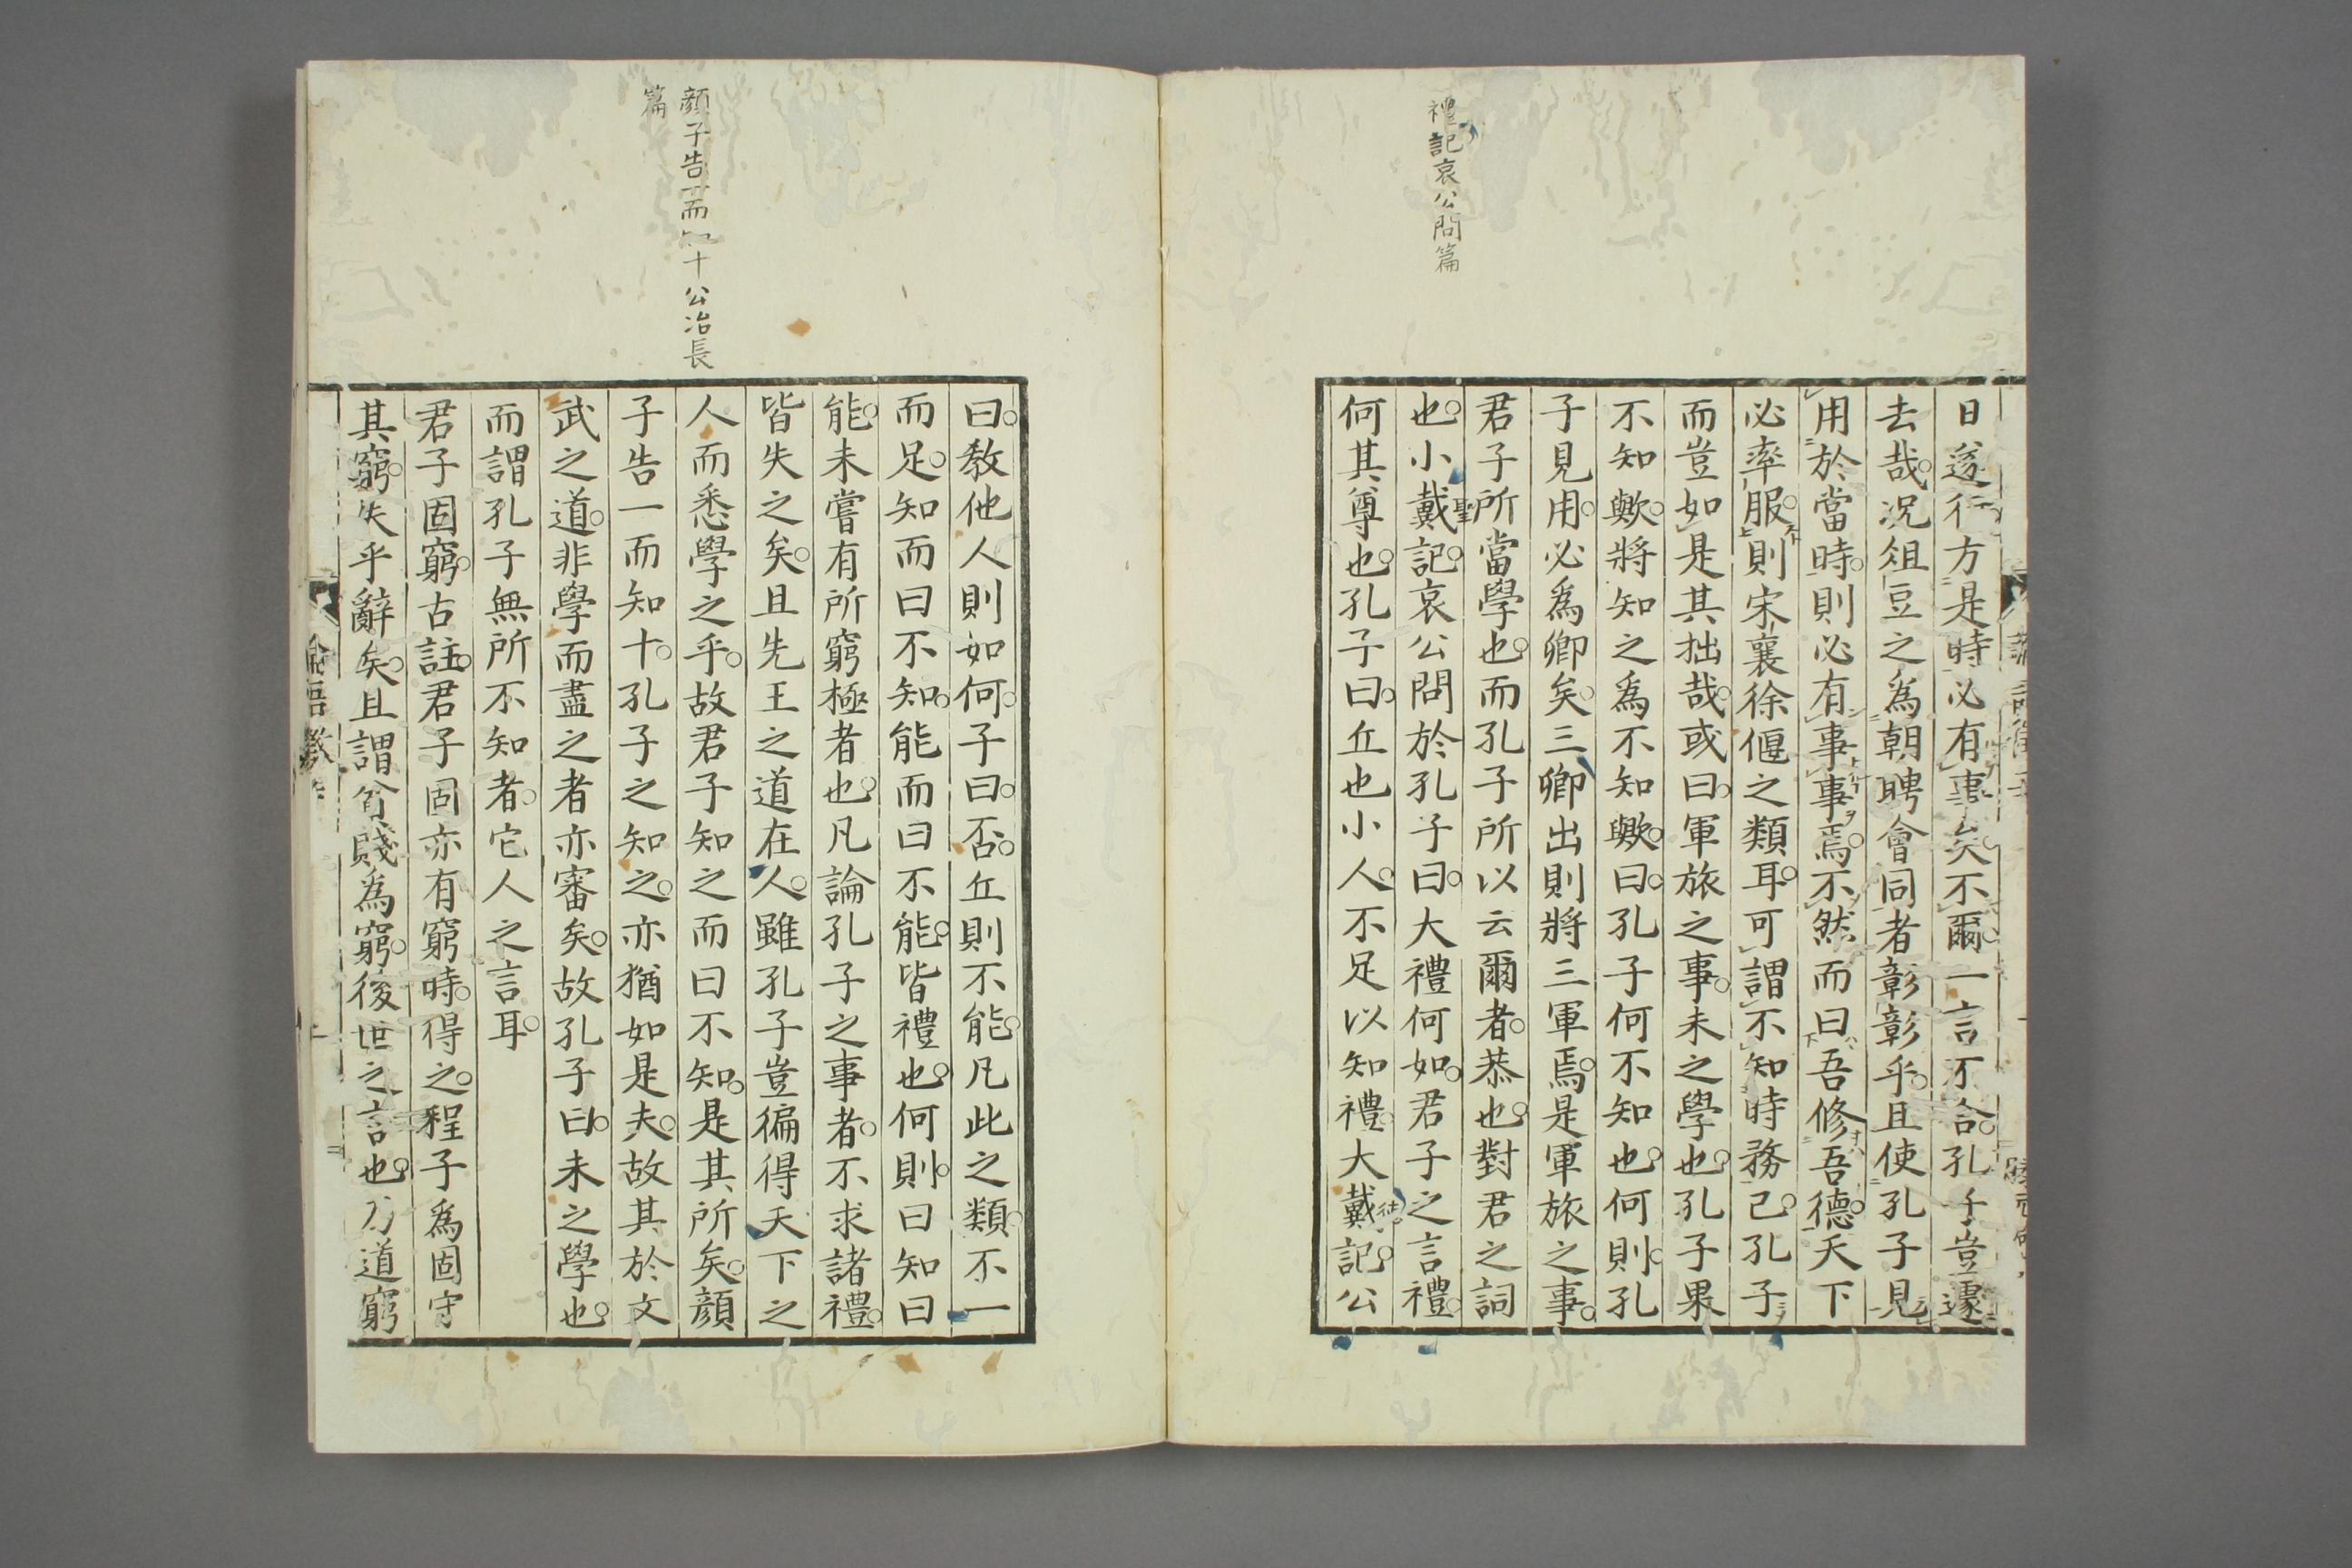 禮記哀公問篇
日遂行方是時必有事矣不爾一言不合孔子豈遽
去哉況俎豆之爲朝聘會同者彰彰乎且使孔子見
用於當時則必有事事焉不然而曰吾修吾德天下
必率服則宋襄徐偃之類耳可謂不知時務已孔子
而豈如是其拙哉或曰軍旅之事未之學也孔子果
不知歟將知之爲不知歟曰孔子何不知也何則孔
子見用必爲卿矣三卿出則將三軍焉是軍旅之事
君子所當學也而孔子所以云爾者恭也對君之詞
也小戴記哀公問於孔子曰大禮何如君子之言禮
何其尊也孔子曰丘也小人不足以知禮大戴記公
顔子告一而知十公冶長
篇
曰敎他人則如何子曰否丘則不能凡此之類不一
而足知而曰不知能而曰不能皆禮也何則曰知曰
能未嘗有所窮極者也凡論孔子之事者不求諸禮
皆失之矣且先王之道在人雖孔子豈徧得天下之
人而悉學之乎故君子知之而曰不知是其所矣顔
子告一而知十孔子之知之亦猶如是夫故其於文
武之道非學而盡之者亦審矣故孔子曰未之學也
而謂孔子無所不知者它人之言耳
君子固窮古註君子固亦有窮時得之程子爲固守
其窮失乎辭矣且謂貧賤爲窮後世之言也乃道窮